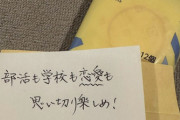 部活も学校も恋愛も
思い切り楽しめ!